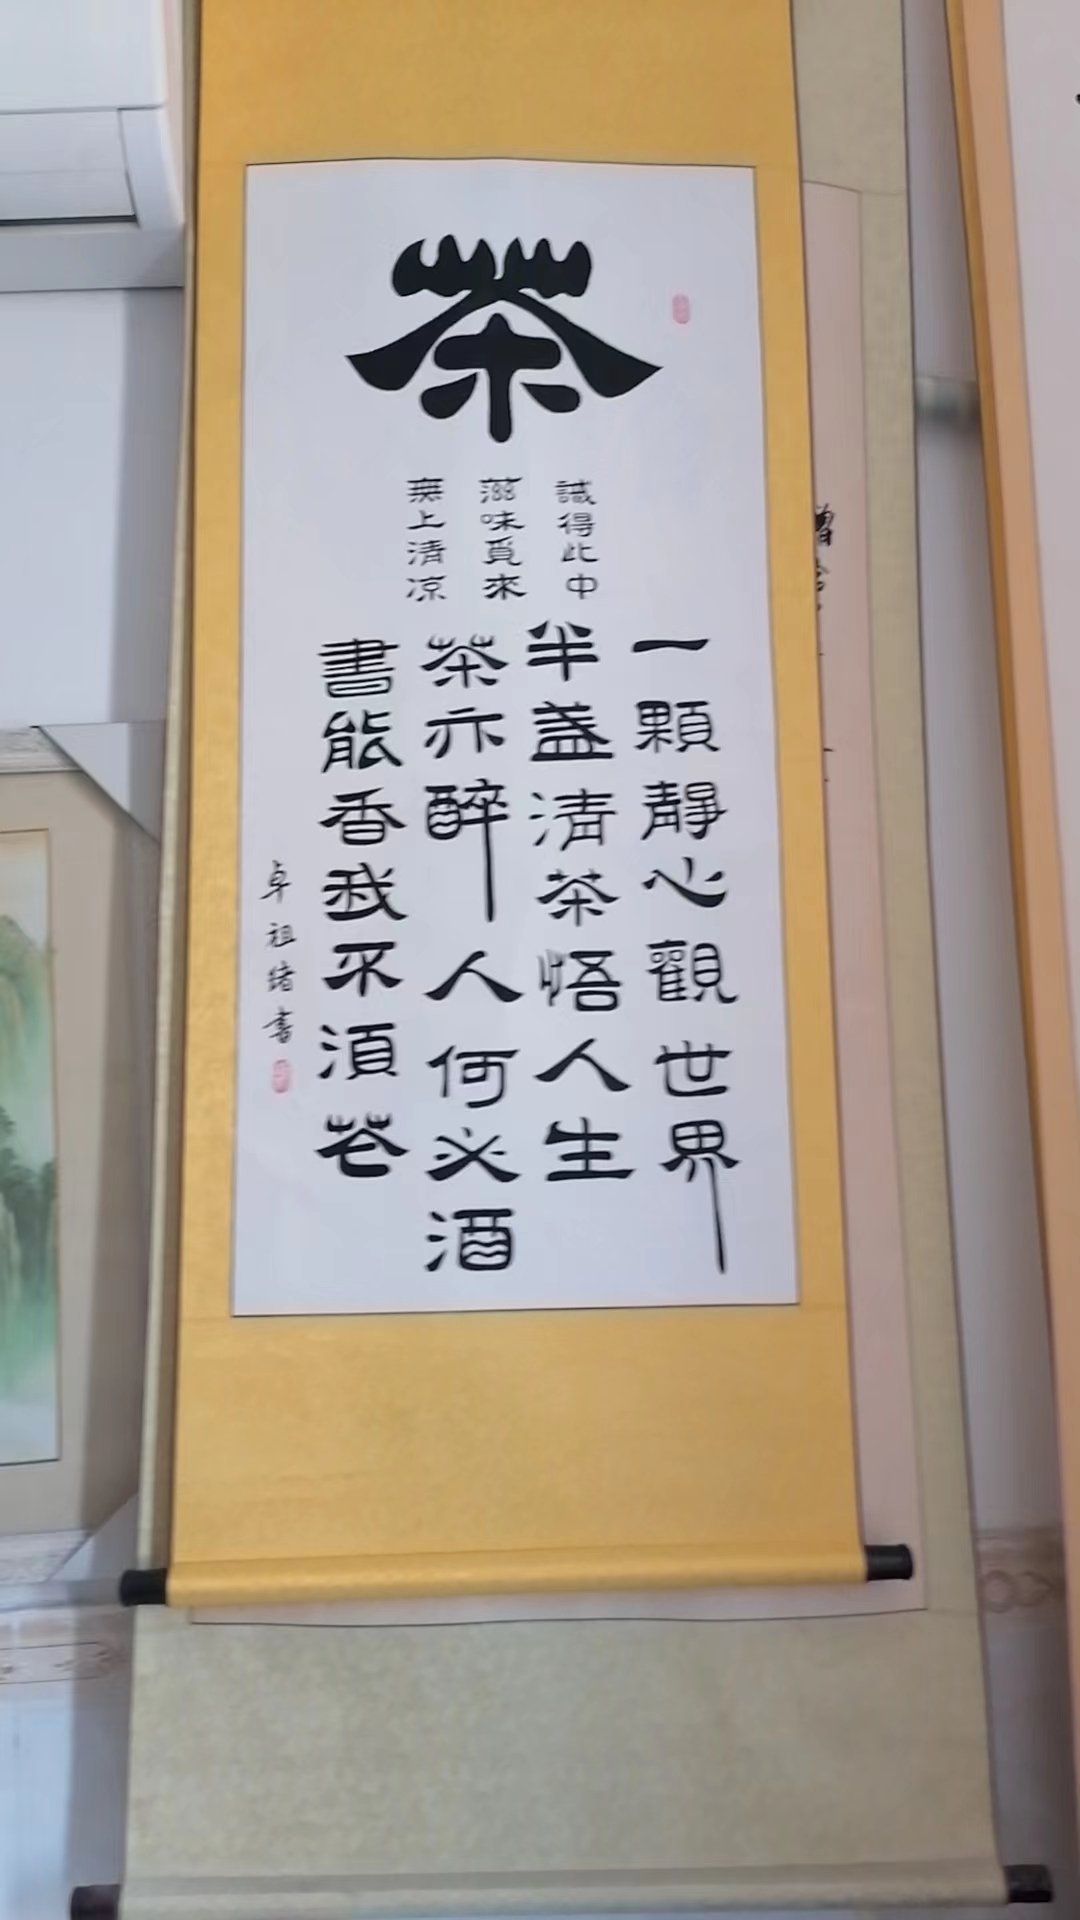 茶
識得此中
滋味覓來
無上清凉
一顆靜心觀世界
半盞清茶悟人生
茶亦醉人何必酒
書能香我不須花
卓祖绪書